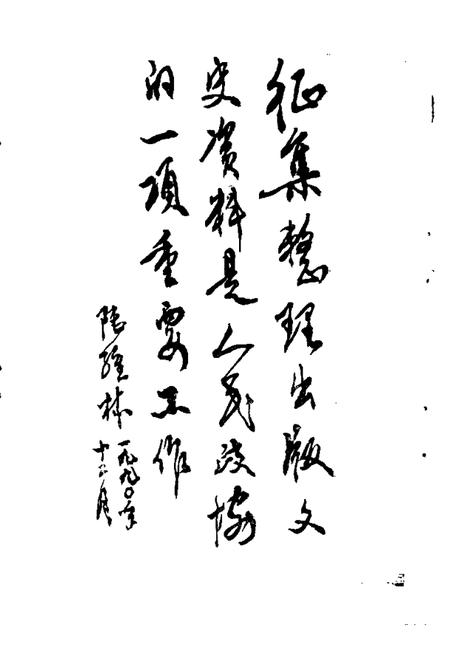 征集整理出版文
史资料是人民政协
的一项重要工作
陆维林
一九九〇年
十二月